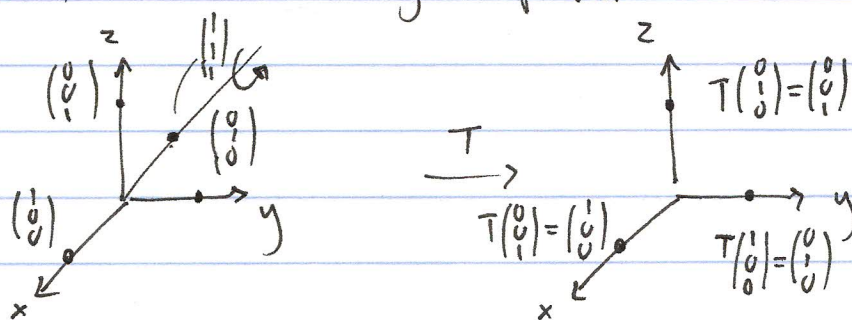 z
(1 1 1)
(0 0 1)
(0 1 0)
(1 0 0)
y
x
T
z
T(0 1 0)=(0 0 1)
T(0 0 1)=(1 0 0)
y
T(1 0 0)=(0 1 0)
x